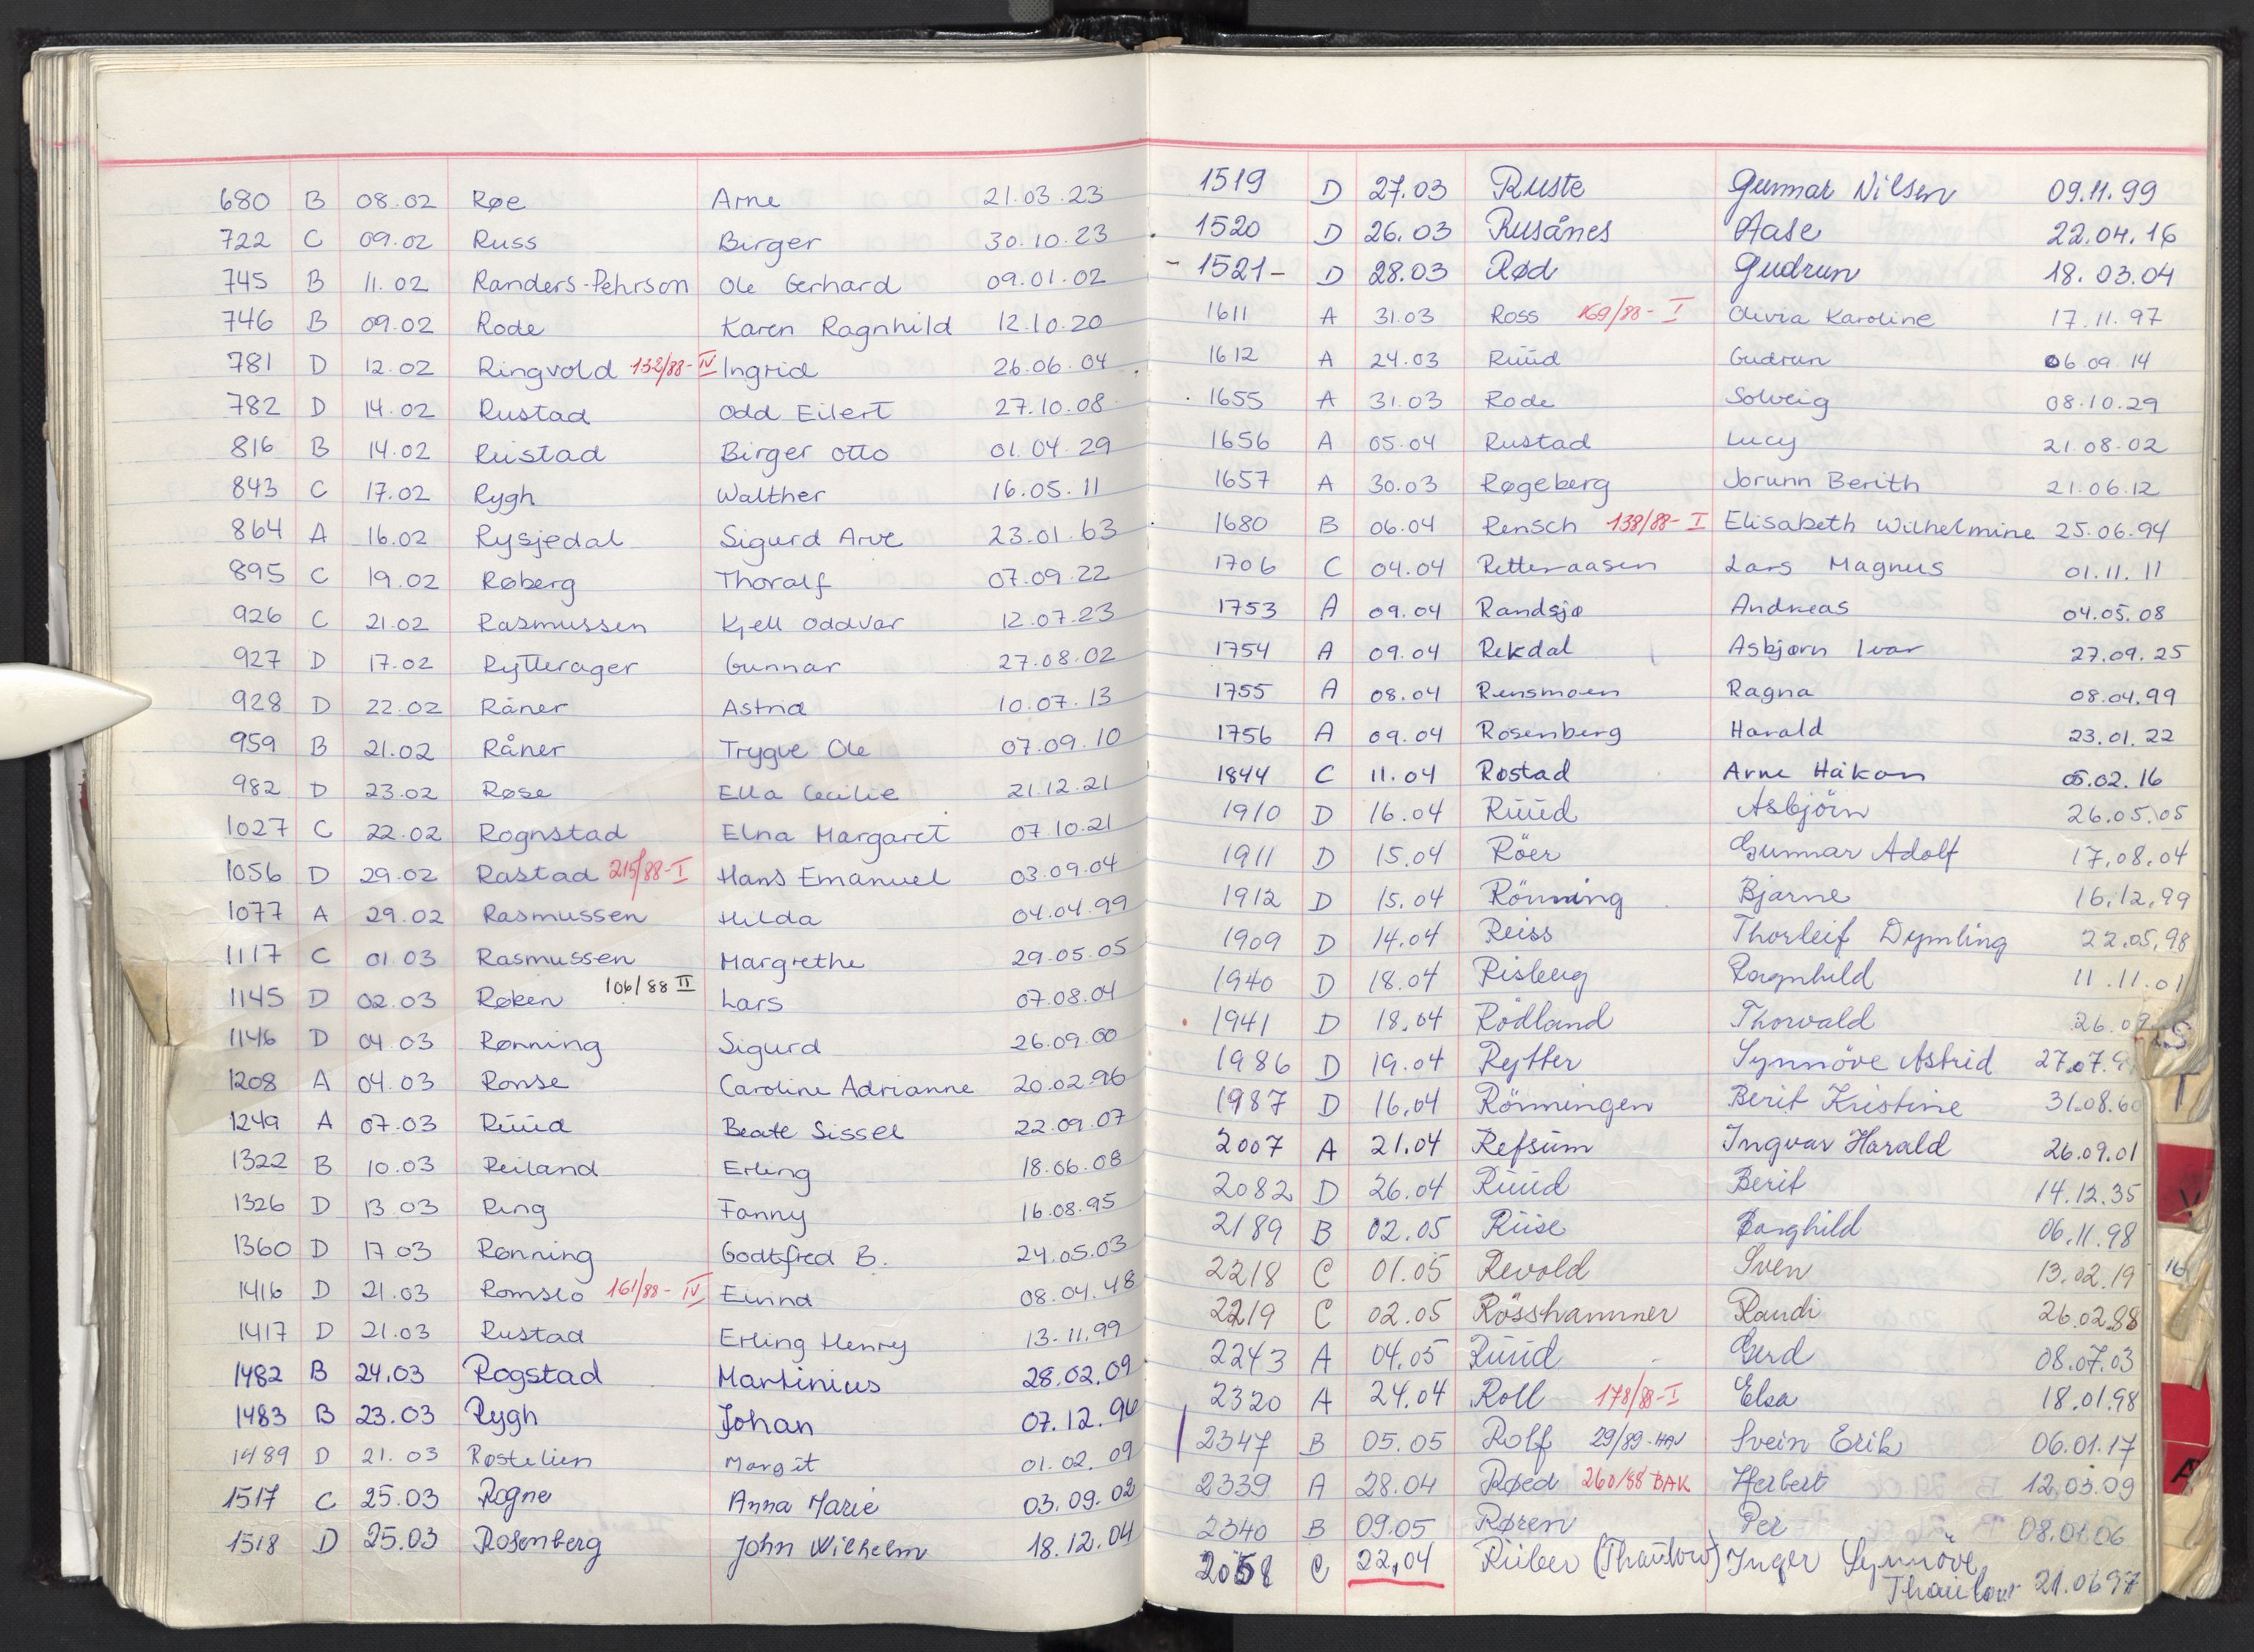 680 B 08.02 Røe Arne 21.03.23
722 C 09.02 Russ Birger 30.10.23
745 B 11.02 Randers-Pehrson Ole Gerhard 09.01.02
746 B 09.02 Rode Karen Ragnhild 12.10.20
781 D 12.02 Ringvold 132/88-IV Ingrid 26.06.04
782 D 14.02 Rustad Odd Eilert 27.10.08
816 B 14.02 Rustad Birger Otto 01.04.29
843 C 17.02 Rygh Walther 16.05.11
864 A 16.02 Rysjedal Sigurd Arve 23.01.63
895 C 19.02 Røberg Thoralf 07.09.22
926 C 21.02 Rasmussen Kjell Oddvar 12.07.23
927 D 17.02 Rytterager Gunnar 27.08.02
928 D 22.02 Råner Astrid 10.07.13
959 B 21.02 Råner Trygve Ole 07.09.10
982 D 23.02 Røse Ella Cecilie 21.12.21
1027 C 22.02 Rognstad Elna Margaret 07.10.21
1056 D 29.02 Rastad 215/88-I Hans Emanuel 03.09.04
1077 A 29.02 Rasmussen Hilda 04.04.99
1117 C 01.03 Rasmussen Margrethe 29.05.05
1145 D 02.03 Røken 106/88 II Lars 07.08.04
1146 D 04.03 Rønning Sigurd 26.09.00
1208 A 04.03 Ronse Caroline Adrianne 20.02.96
1249 A 07.03 Rúúd Beate Sissel 22.09.07
1322 B 10.03 Reiland Erling 18.06.08
1326 D 13.03 Ring Fanny 16.08.95
1360 D 17.03 Rønning Godtfred B. 24.05.03
1416 D 21.03 Romslo 161/88-IV Eivind 08.04.48
1417 D 21.03 Rustad Erling Henry 13.11.99
1482 B 24.03 Rogstad Martinius 28.02.09
1483 B 23.03 Rygh Johan 07.12.96
1489 D 21.03 Røstelien Margit 01.02.09
1517 C 25.03 Rogne Anna Marie 03.09.02
1518 D 25.03 Rosenberg John Wilhelm 18.12.04
1519 D 27.03 Ruste Gunnar Nilsen 09.11.99
1520 D 26.03 Rusånes Aase 22.04.16
- 1521 - D 28.03 Rød Gudrun 18.03.04
1611 A 31.03 Ross 169/88-I Olivia Karoline 17.11.97
1612 A 24.03 Rúúd Gudrun 06.09.14
1655 A 31.03 Rode Solveig 08.10.29
1656 A 05.04 Rustad Lucy 21.08.02
1657 A 30.03 Røgeberg Jorunn Berith 21.06.12
1680 B 06.04 Rensch 138/88-I Elisabeth Wilhelmine 25.06.94
1706 C 04.04 Retteraasen Lars Magnus 01.11.11
1753 A 09.04 Randsjø Andreas 04.05.08
1754 A 09.04 Rekdal Asbjørn Ivar 27.09.25
1755 A 08.04 Rensmoen Ragna 08.04.99
1756 A 09.04 Rosenberg Harald 23.01.22
1844 C 11.04 Røstad Arne Håkon 05.02.16
1910 D 16.04 Rúúd Asbjörn 26.05.05
1911 D 15.04 Röer Gunnar Adolf 17.08.04
1912 D 15.04 Rönning Bjarne 16.12.99
1909 D 14.04 Reiss Thorleif Dymling 22.05.98
1940 D 18.04 Risberg Ragnhild 11.11.01
1941 D 18.04 Rödland Thorvald 26.09
1986 D 19.04 Rytter Synnöve Astrid 27.07.9
1987 D 16.04 Rönningen Berit Kristine 31.08.60
2007 A 21.04 Refsúm Ingvar Harald 26.09.01
2082 D 26.04 Rúúd Berit 14.12.35
2189 B 02.05 Riise Borghild 06.11.98
2218 C 01.05 Revold Sven 13.02.19
2219 C 02.05 Rösshammer Randi 26.02.88
2243 A 04.05 Rúúd Gerd 08.07.03
2320 A 24.04 Roll 178/88-I Elsa 18.01.98
2347 B 05.05 Rolf 29/89-HAV Svein Erik 06.01.17
2339 A 28.04 Røed 260/88 BAK Herbert 12.03.09
2340 B 09.05 Røren Per 08.01.06
2058 C 22.04 Rieber (Thaulow) Inger Synnöve
Thaulow 21.06 97